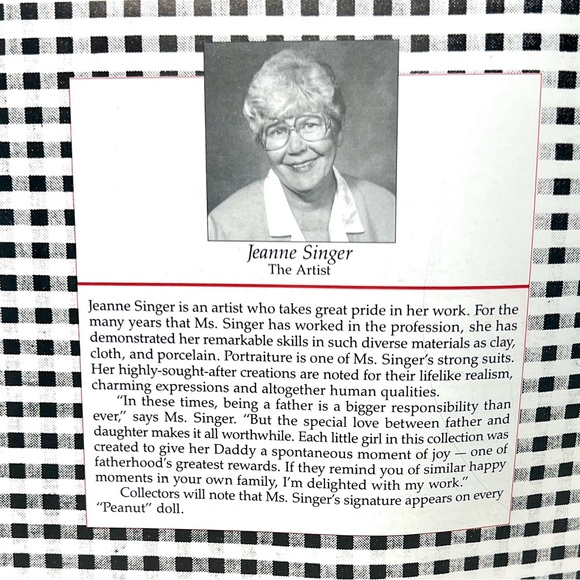 Jeanne Singer
The Artist
Jeanne Singer is an artist who takes great pride in her work. For the
many years that Ms. Singer has worked in the profession, she has
demonstrated her remarkable skills in such diverse materials as clay,
cloth, and porcelain. Portraiture is one of Ms. Singer's strong suits.
Her highly-sought-after creations are noted for their lifelike realism,
charming expressions and altogether human qualities.
"In these times, being a father is a bigger responsibility than
ever," says Ms. Singer. "But the special love between father and
daughter makes it all worthwhile. Each little girl in this collection was
created to give her Daddy a spontaneous moment of joy — one of
fatherhood's greatest rewards. If they remind you of similar happy
moments in your own family, I'm delighted with my work."
Collectors will note that Ms. Singer's signature appears on every
"Peanut" doll.